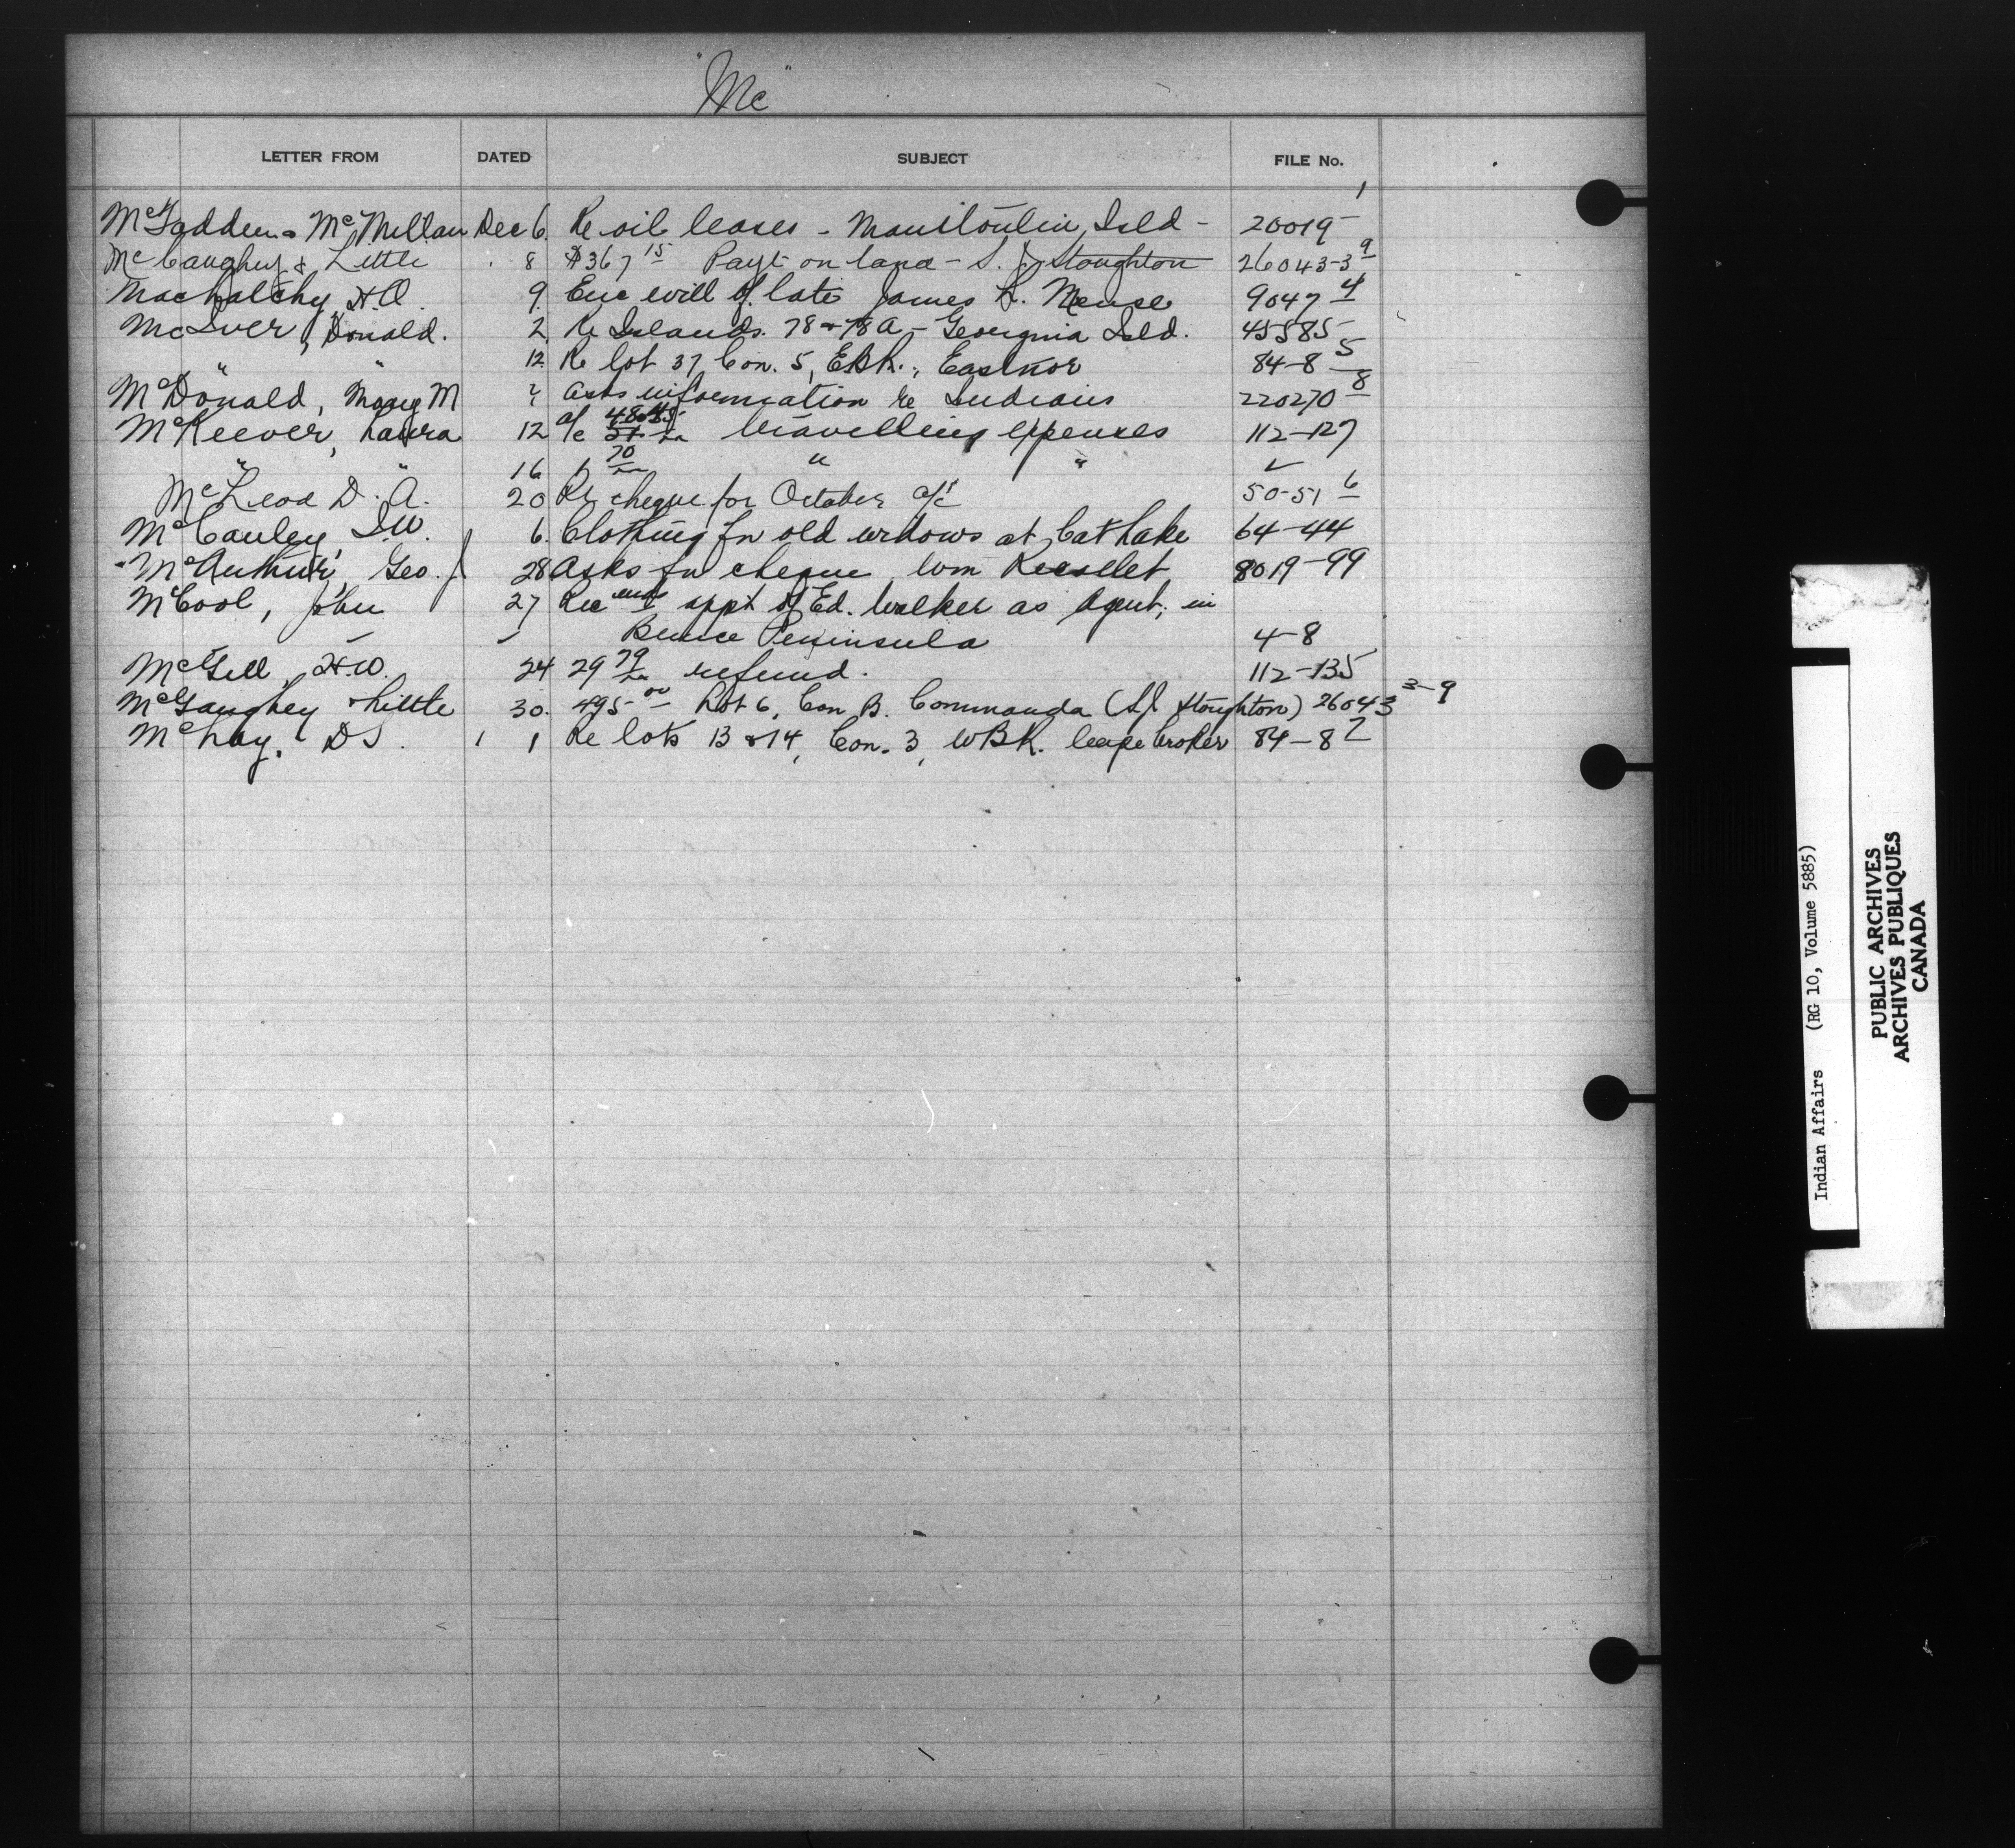 "Mc"
LETTER FROM DATED SUBJECT FILE No.
McFadden & McMillan Dec 6. Re oil leases - Manitoulin Isld - 20019-1
McCaughey & Little 8 $367 15 Payt on land - S. J. Stoughton 26043-3 9
Machatchy, H.A. 9. Enc will of late James L. Meuse 9047 4
McIver, Donald. 2 Re Islands. 78 & 78A - Georgina Isld. 45585
" " 12. Re lot 37, Con. 5, E.B.R., Eastnor 84-8 5
McDonald, Mary M asks information re Indians 220270 8
McKeever, Laura 12 a/c travelling expenses 112-127
" " 16 70 " " ✓
McLeod D. A. 20 Re cheque for October a/c 50-51 6
McCauley, I.W. 6. Clothing for old widows at Cat Lake 64-44
McArthur, Geo. J 28 Asks for cheque Wm 8019-99
McCool, John 27 Recmends appt of Ed. Walker as Agent, in
Bruce Peninsula 4-8
McGill, H.W. 24 29 79 refund. 112-135
McGaughey & Little 30. 495 00 Lot 6, Con B. Commanda (S.J. Stoughton) 26043 3-9
McLay, D.S. 1 Re lots 13 & 14, Con. 3, WBR. Cape Croker 84-8 7
Indian Affairs (RG 10, Volume 5885)
PUBLIC ARCHIVES
ARCHIVES PUBLIQUES
CANADA